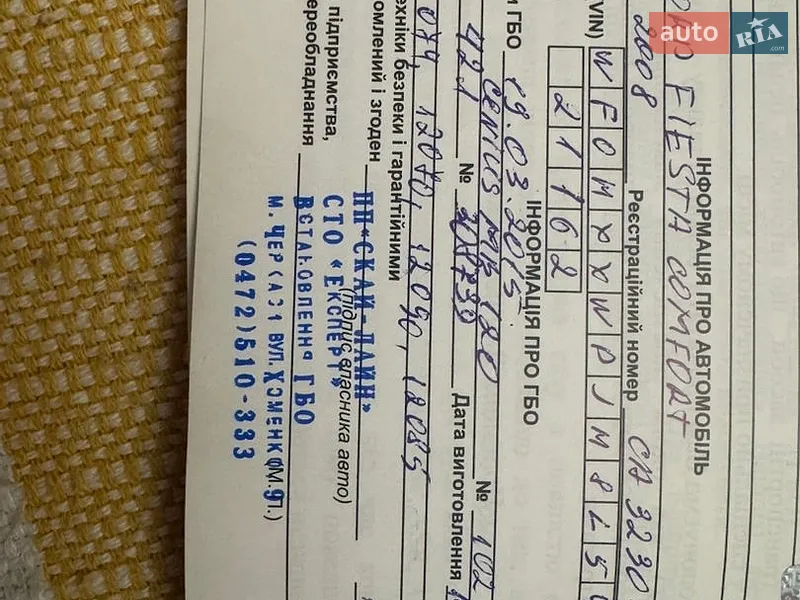 auto RIA .com
ІНФОРМАЦІЯ ПРО АВТОМОБІЛЬ
FIESTA COMFORT
2008 Реєстраційний номер СА 3230
(VIN) W F 0 M X X W P J M 8 L 5
2 1 1 6 2
ІНФОРМАЦІЯ ПРО ГБО
и ГБО 19.03.2015.
Genius MB 120 № 102
421 № Дата виготовлення
079, 12070, 12090, 12085
техніки безпеки і гарантійними
омлений і згоден
(підпис власника авто)
підприємства,
ереобладнання
ПП«СКАЙ-ЛАЙН»
СТО «ЕКСПЕРТ»
ВСТАНОВЛЕННЯ ГБО
М. ЧЕРКАСИ ВУЛ. ХОМЕНКО
(0472)510-333
(М.П.)